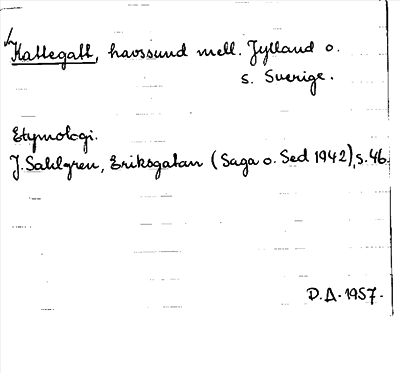 Kattegatt, havssund mell. Jylland o.
s. Sverige.
Etymologi.
J. Sahlgren, Eriksgatan (Saga o. Sed 1942), s. 46.
D.A. 1957.